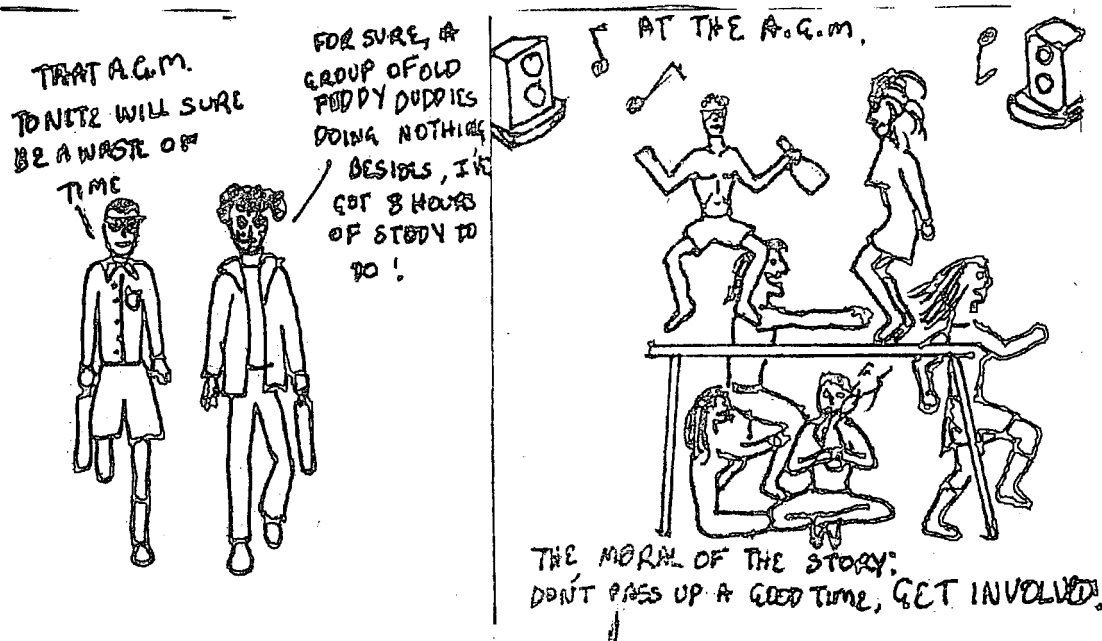 THAT A.G.M.
TONITE WILL SURE
BE A WASTE OF
TIME
FOR SURE, A
GROUP OF OLD
FUDDY DUDDIES
DOING NOTHING
BESIDES, I'VE
GOT 8 HOURS
OF STUDY TO
DO!
AT THE A.G.M.
THE MORAL OF THE STORY:
DON'T PASS UP A GOOD TIME, GET INVOLVED.